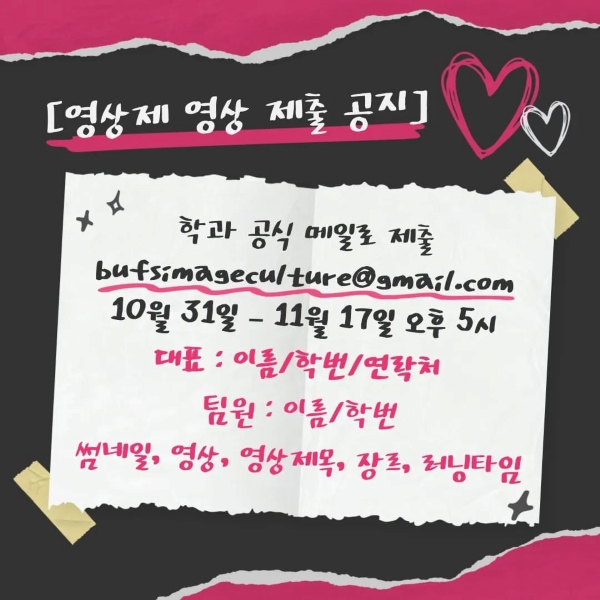 [영상제 영상 제출 공지]
학과 공식 메일로 제출
bufsimageculture@gmail.com
10월 31일 - 11월 17일 오후 5시
대표 : 이름/학번/연락처
팀원 : 이름/학번
썸네일, 영상, 영상제목, 장르, 러닝타임